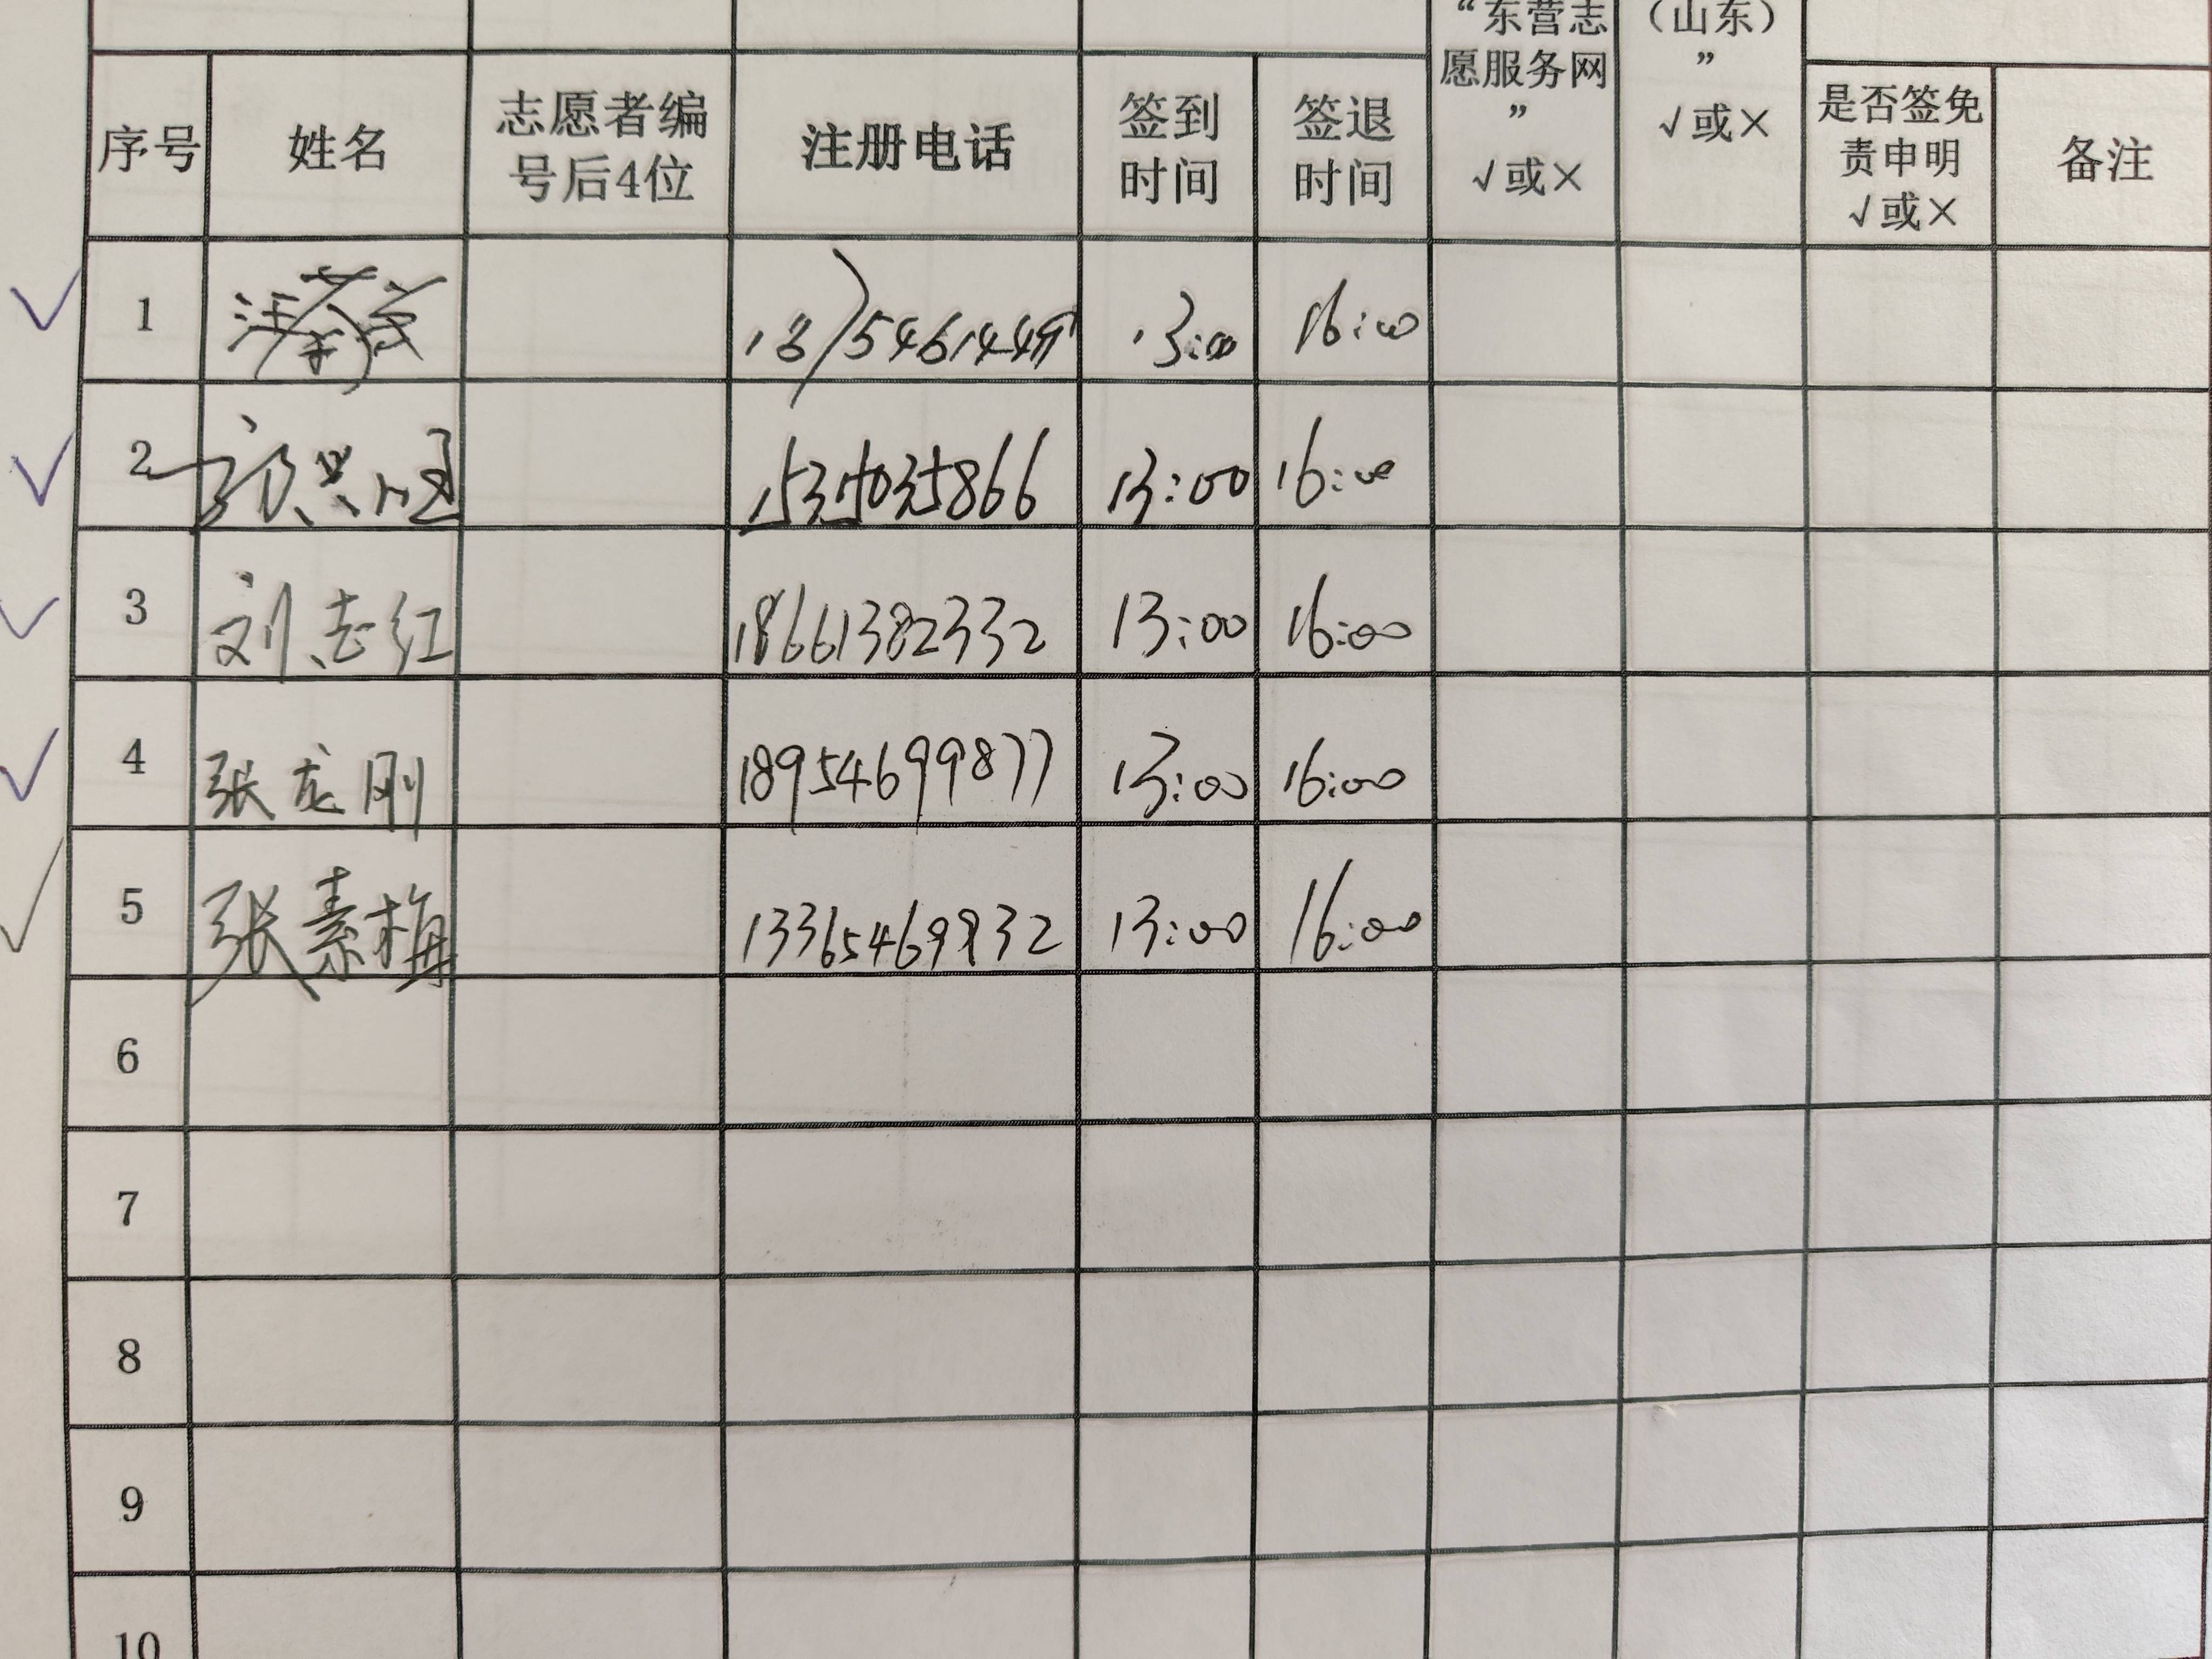 “东营志
愿服务网
”
√或×
（山东）
”
√或×
序号
姓名
志愿者编
号后4位
注册电话
签到
时间
签退
时间
是否签免
责申明
√或×
备注
1 13:00 16:00
2 13:00 16:00
3 刘志红 18661382332 13:00 16:00
4 张龙刚 18954699877 13:00 16:00
5 张素梅 13:00 16:00
6
7
8
9
10